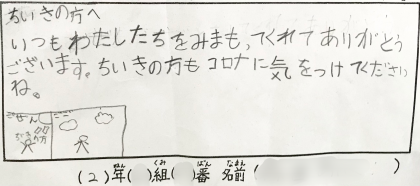 ちいきの方へ
いつもわたしたちをみまもってくれてありがとう
ございます。ちいきの方もコロナに気をつけてください
ね。
ごぜん
ごご
(2)年( )組( )番 名前( )
くみ ばん なまえ